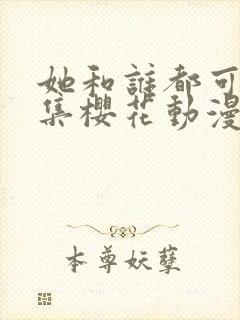 她和誰都可
集櫻花動漫
本尊妖孽